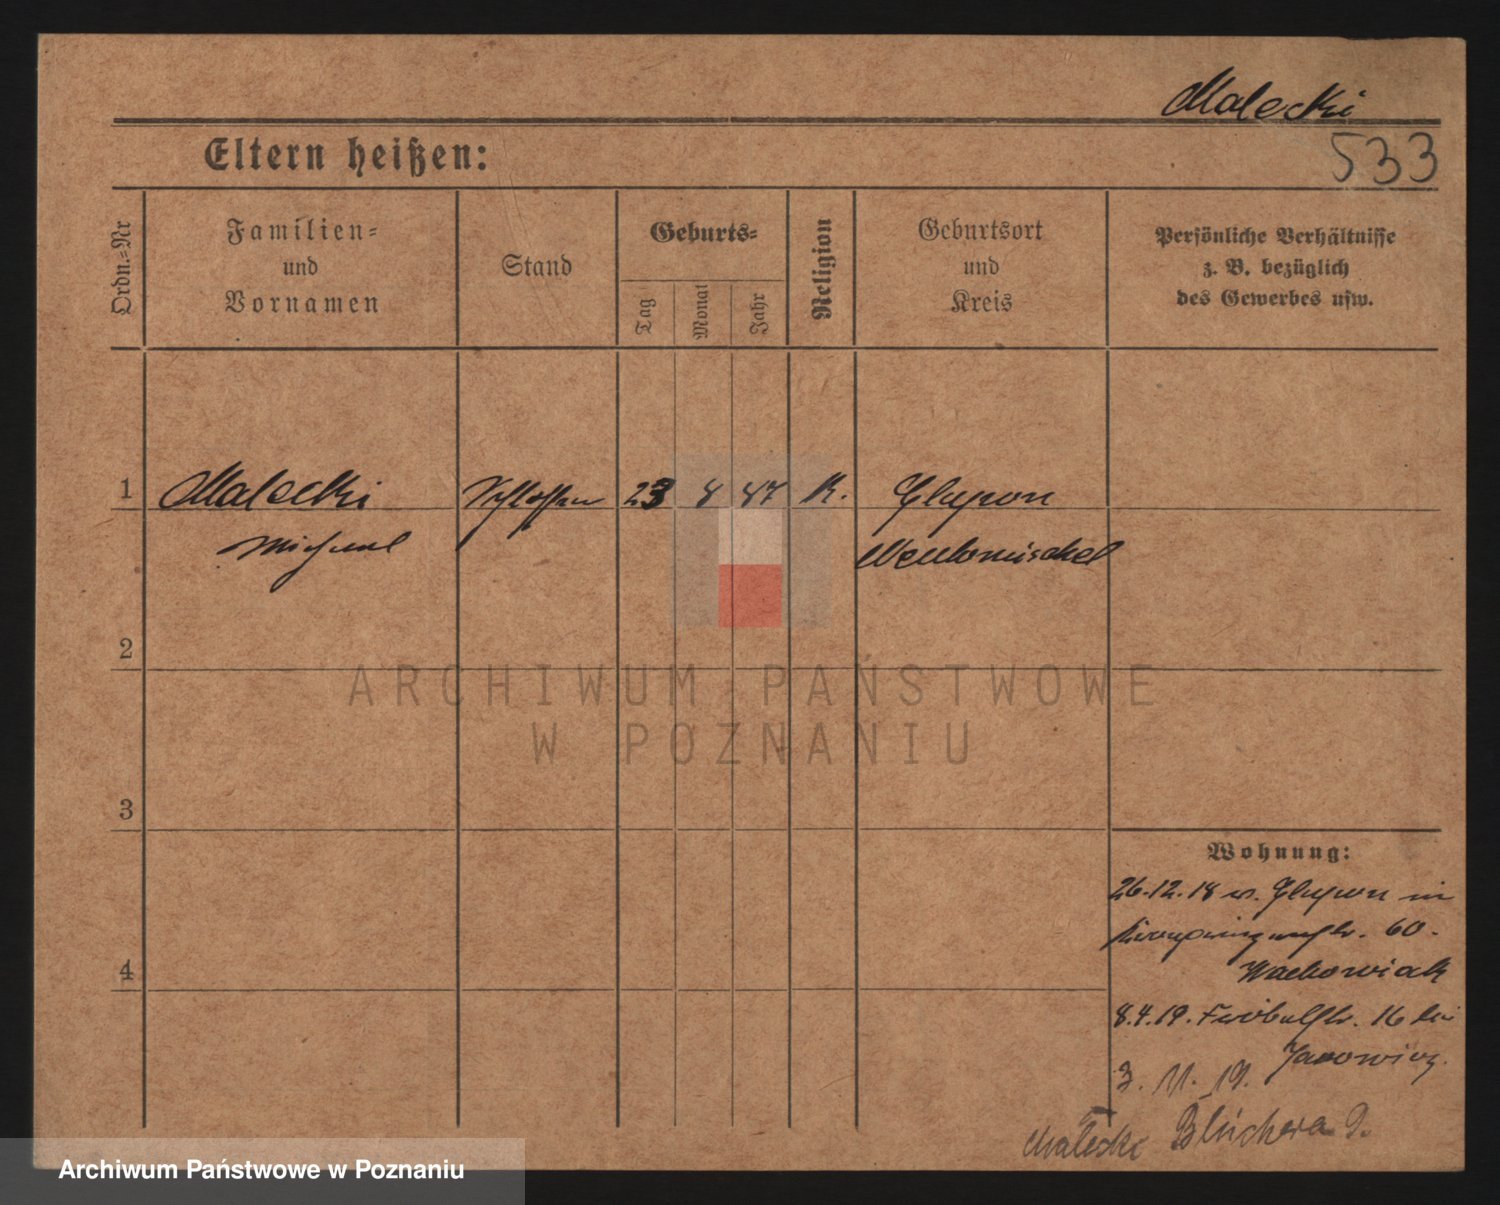 Malecki
533
Eltern heißen:
Ordn.=Nr
Familien=
und
Vornamen
Stand
Geburts=
Tag
Monat
Jahr
Religion
Geburtsort
und
Kreis
Persönliche Verhältnisse
z. B. bezüglich
des Gewerbes usw.
1 Malecki Schlosser 23 8 87 K. Glupon
Michael Neutomischel
2
ARCHIWUM PAŃSTWOWE
W POZNANIU
3
4
Wohnung:
26.12.18 v. Glupon in
Kronprinzenstr. 60.
Wachowiak
8.4.19. Fröbelstr. 16 bei
Janowicz.
3. 11. 19.
Malecki Blüchera 9.
Archiwum Państwowe w Poznaniu